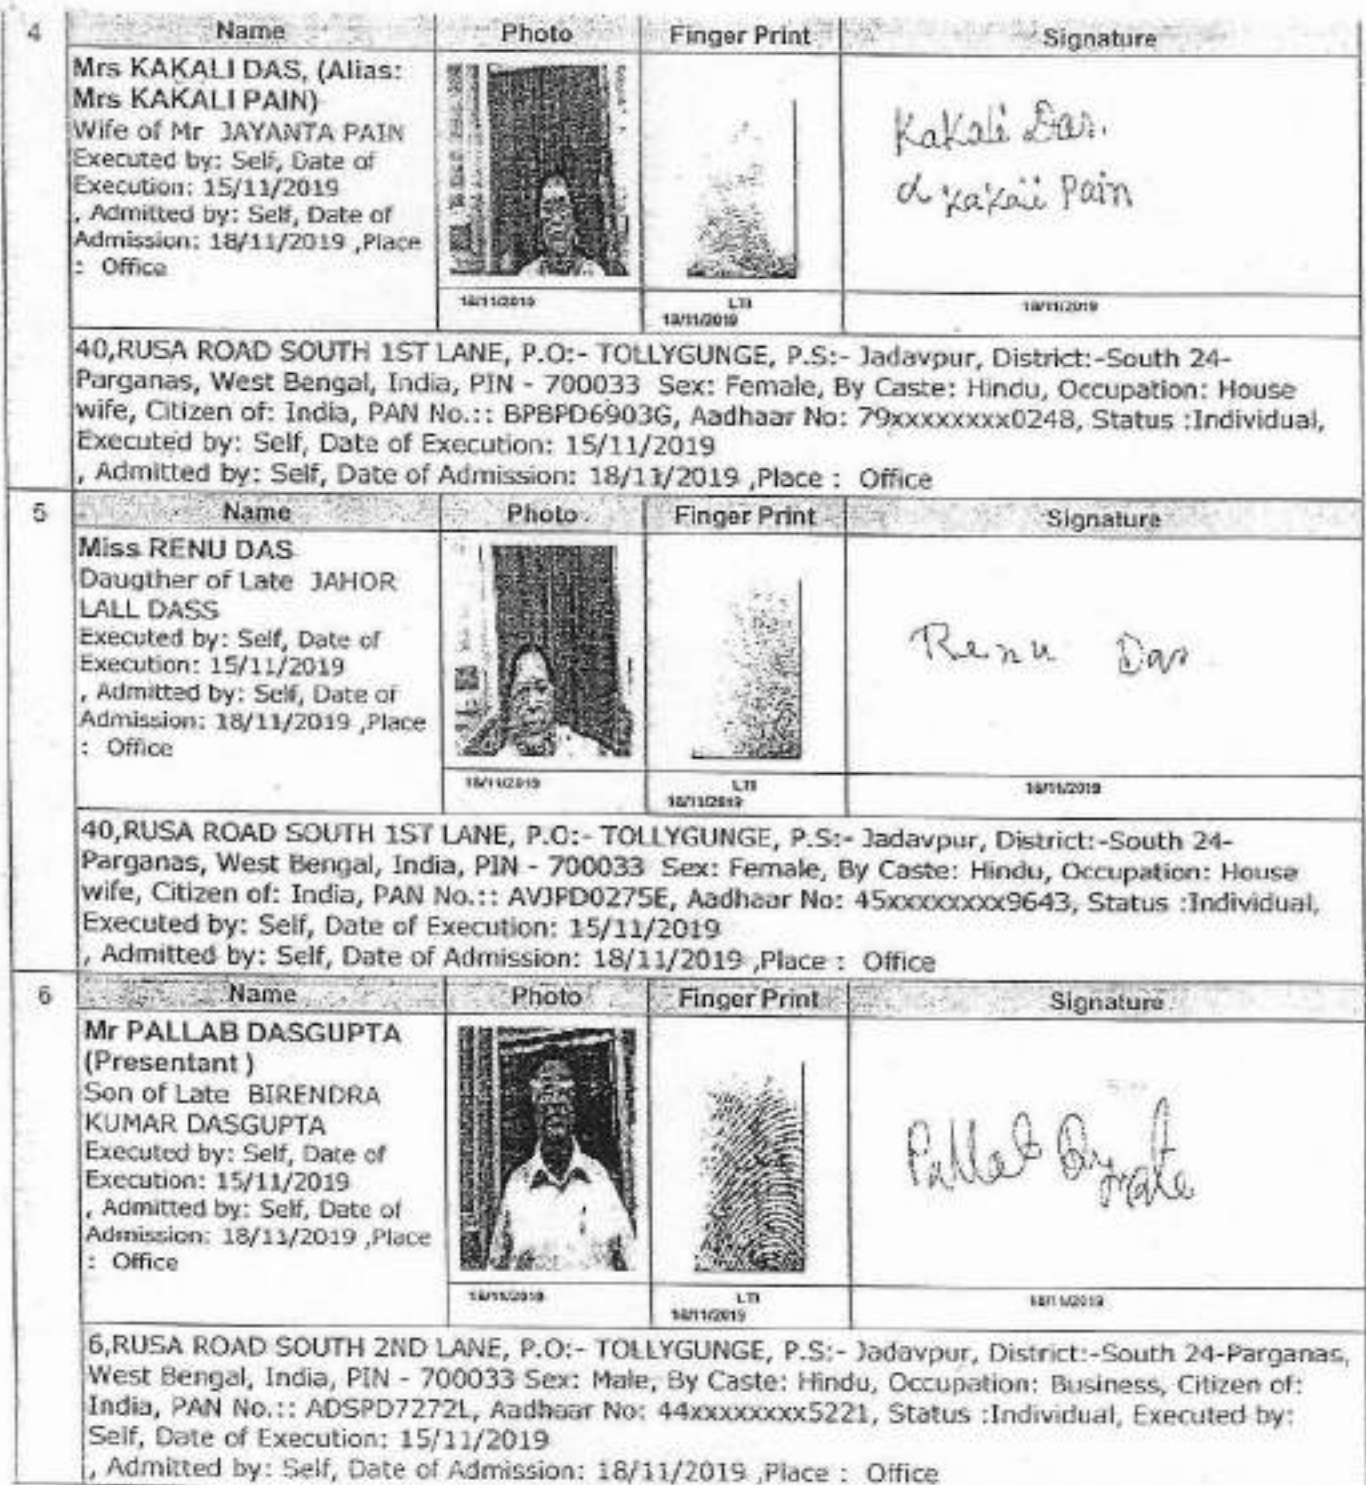 4 Name Photo Finger Print Signature
Mrs KAKALI DAS, (Alias:
Mrs KAKALI PAIN)
Wife of Mr JAYANTA PAIN
Executed by: Self, Date of
Execution: 15/11/2019
, Admitted by: Self, Date of
Admission: 18/11/2019 ,Place
: Office
Kakali Das.
Kakali Pain
18/11/2019 LTI 18/11/2019
18/11/2019
40,RUSA ROAD SOUTH 1ST LANE, P.O:- TOLLYGUNGE, P.S:- Jadavpur, District:-South 24-
Parganas, West Bengal, India, PIN - 700033 Sex: Female, By Caste: Hindu, Occupation: House
wife, Citizen of: India, PAN No.:: BPBPD6903G, Aadhaar No: 79xxxxxxxx0248, Status :Individual,
Executed by: Self, Date of Execution: 15/11/2019
, Admitted by: Self, Date of Admission: 18/11/2019 ,Place : Office
5 Name Photo Finger Print Signature
Miss RENU DAS
Daugther of Late JAHOR
LALL DASS
Executed by: Self, Date of
Execution: 15/11/2019
, Admitted by: Self, Date of
Admission: 18/11/2019 ,Place
: Office
Renu Das
18/11/2019 LTI 18/11/2019
18/11/2019
40,RUSA ROAD SOUTH 1ST LANE, P.O:- TOLLYGUNGE, P.S:- Jadavpur, District:-South 24-
Parganas, West Bengal, India, PIN - 700033 Sex: Female, By Caste: Hindu, Occupation: House
wife, Citizen of: India, PAN No.:: AVJPD0275E, Aadhaar No: 45xxxxxxxx9643, Status :Individual,
Executed by: Self, Date of Execution: 15/11/2019
, Admitted by: Self, Date of Admission: 18/11/2019 ,Place : Office
6 Name Photo Finger Print Signature
Mr PALLAB DASGUPTA
(Presentant )
Son of Late BIRENDRA
KUMAR DASGUPTA
Executed by: Self, Date of
Execution: 15/11/2019
, Admitted by: Self, Date of
Admission: 18/11/2019 ,Place
: Office
Pallab
18/11/2019 LTI 18/11/2019
18/11/2019
6,RUSA ROAD SOUTH 2ND LANE, P.O:- TOLLYGUNGE, P.S:- Jadavpur, District:-South 24-Parganas,
West Bengal, India, PIN - 700033 Sex: Male, By Caste: Hindu, Occupation: Business, Citizen of:
India, PAN No.:: ADSPD7272L, Aadhaar No: 44xxxxxxxx5221, Status :Individual, Executed by:
Self, Date of Execution: 15/11/2019
, Admitted by: Self, Date of Admission: 18/11/2019 ,Place : Office